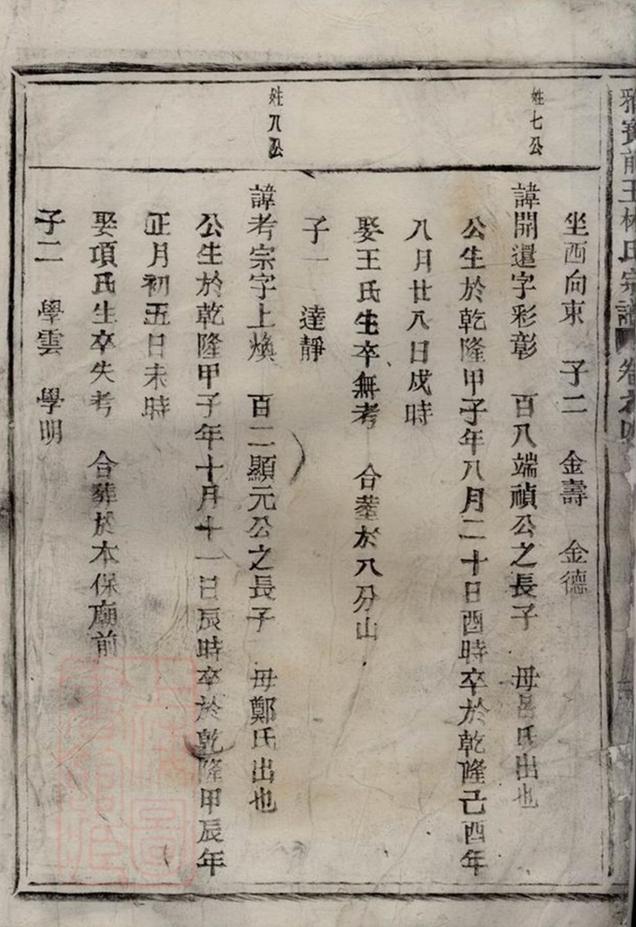 王林氏宗譜 卷之
坐西向東 子二 金壽 金德
姓七公
諱開運字彩彰 百八端禎公之長子 母呂氏出也
公生於乾隆甲子年八月二十日酉時卒於乾隆己酉年
八月廿八日戍時
娶王氏生卒無考 合塟於八分山
子一 達靜
姓八公
諱考宗字上煥 百二顯元公之長子 母鄭氏出也
公生於乾隆甲子年十月十一日辰時卒於乾隆甲辰年
正月初五日未時
娶項氏生卒失考 合葬於本保廟前
子二 學雲 學明